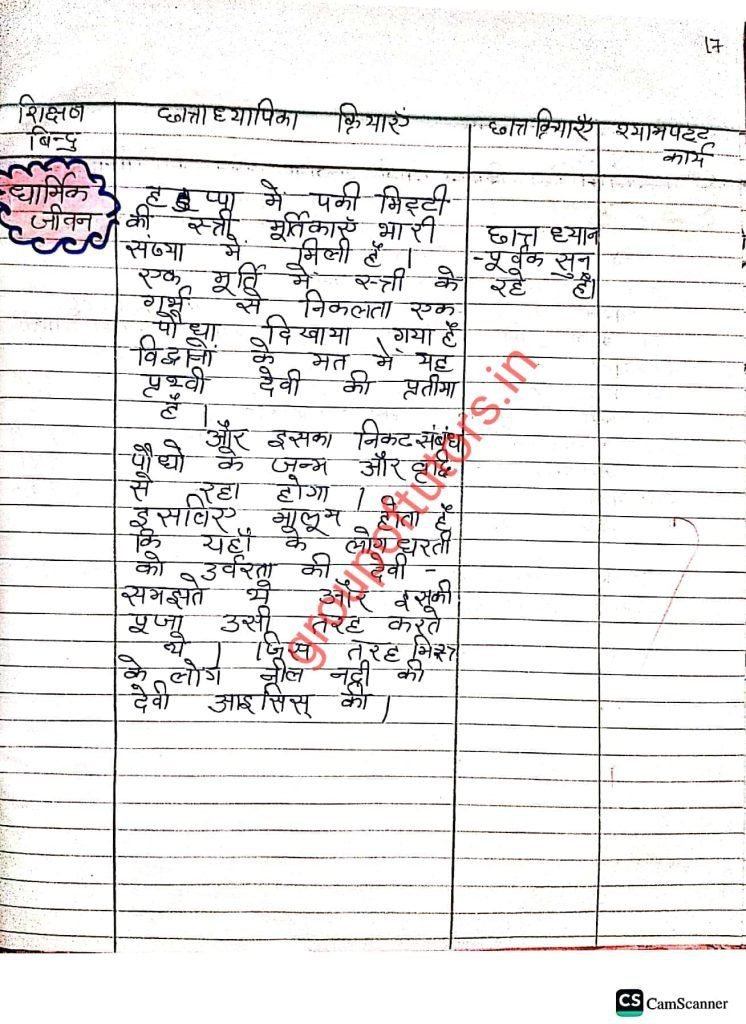 17
शिक्षण बिन्दु
छात्राध्यापिका क्रियाएं
छात्र क्रियाएँ
श्यामपट्ट कार्य
धार्मिक
जीवन
हड़प्पा में पकी मिट्टी
की स्त्री मूर्तिकाएँ भारी
संख्या में मिली हैं |
एक मूर्ति में स्त्री के
गर्भ से निकलता एक
पौधा दिखाया गया है
विद्वानों के मत में यह
पृथ्वी देवी की प्रतीमा
है |
और इसका निकट संबंध
पौधो के जन्म और वृद्धि
से रहा होगा |
इसलिए मालूम होता है
कि यहाँ के लोग धरती
को उर्वरता की देवी -
समझते थे और इसकी
पूजा उसी तरह करते
थे | जिस तरह मिस्त्र
के लोग नील नदी की
देवी आइसिस् की |
छात्र ध्यान
-पूर्वक सुन
रहे हैं।
groupoftutors.in
CS CamScanner